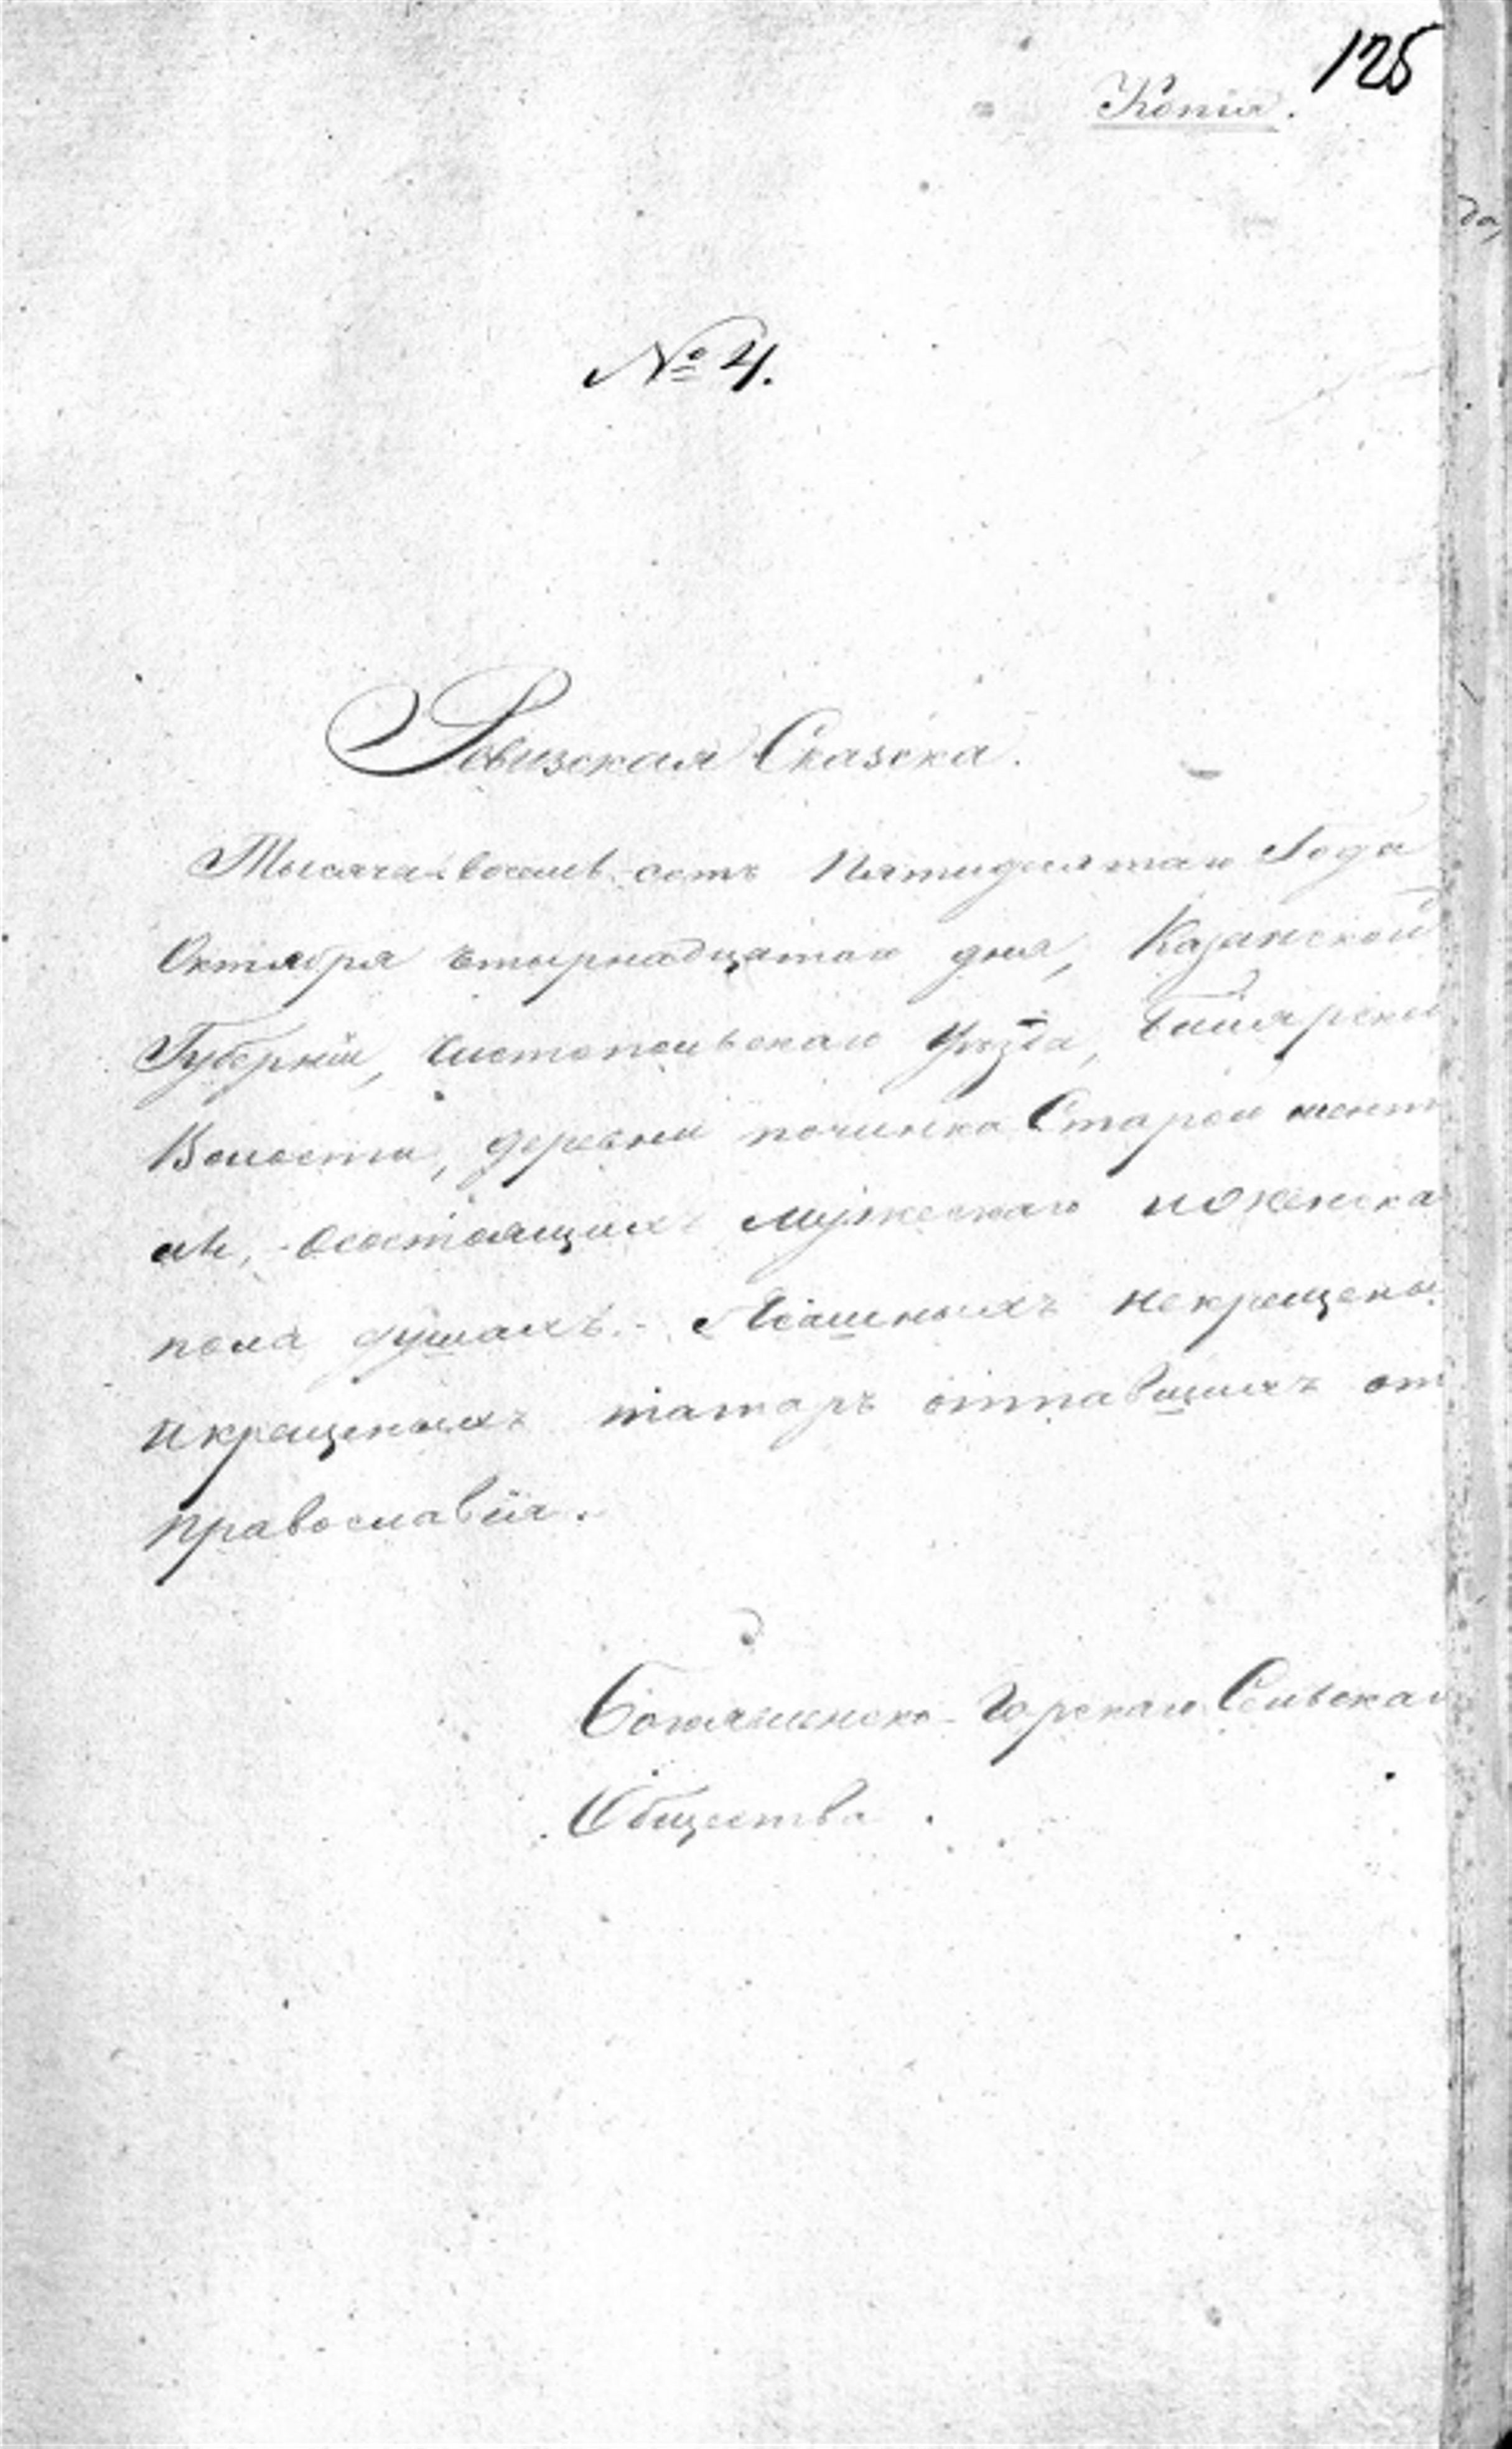 125
Копія.
№ 4.
Ревизская Сказска.
Тысяча восемь сотъ Пятидесятаго Года
Октября чтырнадцатаго дня, Казанской
Губерніи, Чистопольскаго Уѣзда,
Волости, деревни починка Старой
осостоящихъ мужескаго иженска
пола душахъ. - Ясашныхъ некрещены
икрещеныхъ татаръ отпавшихъ от
Православія.
Горскаго Сельскаго
Общества.